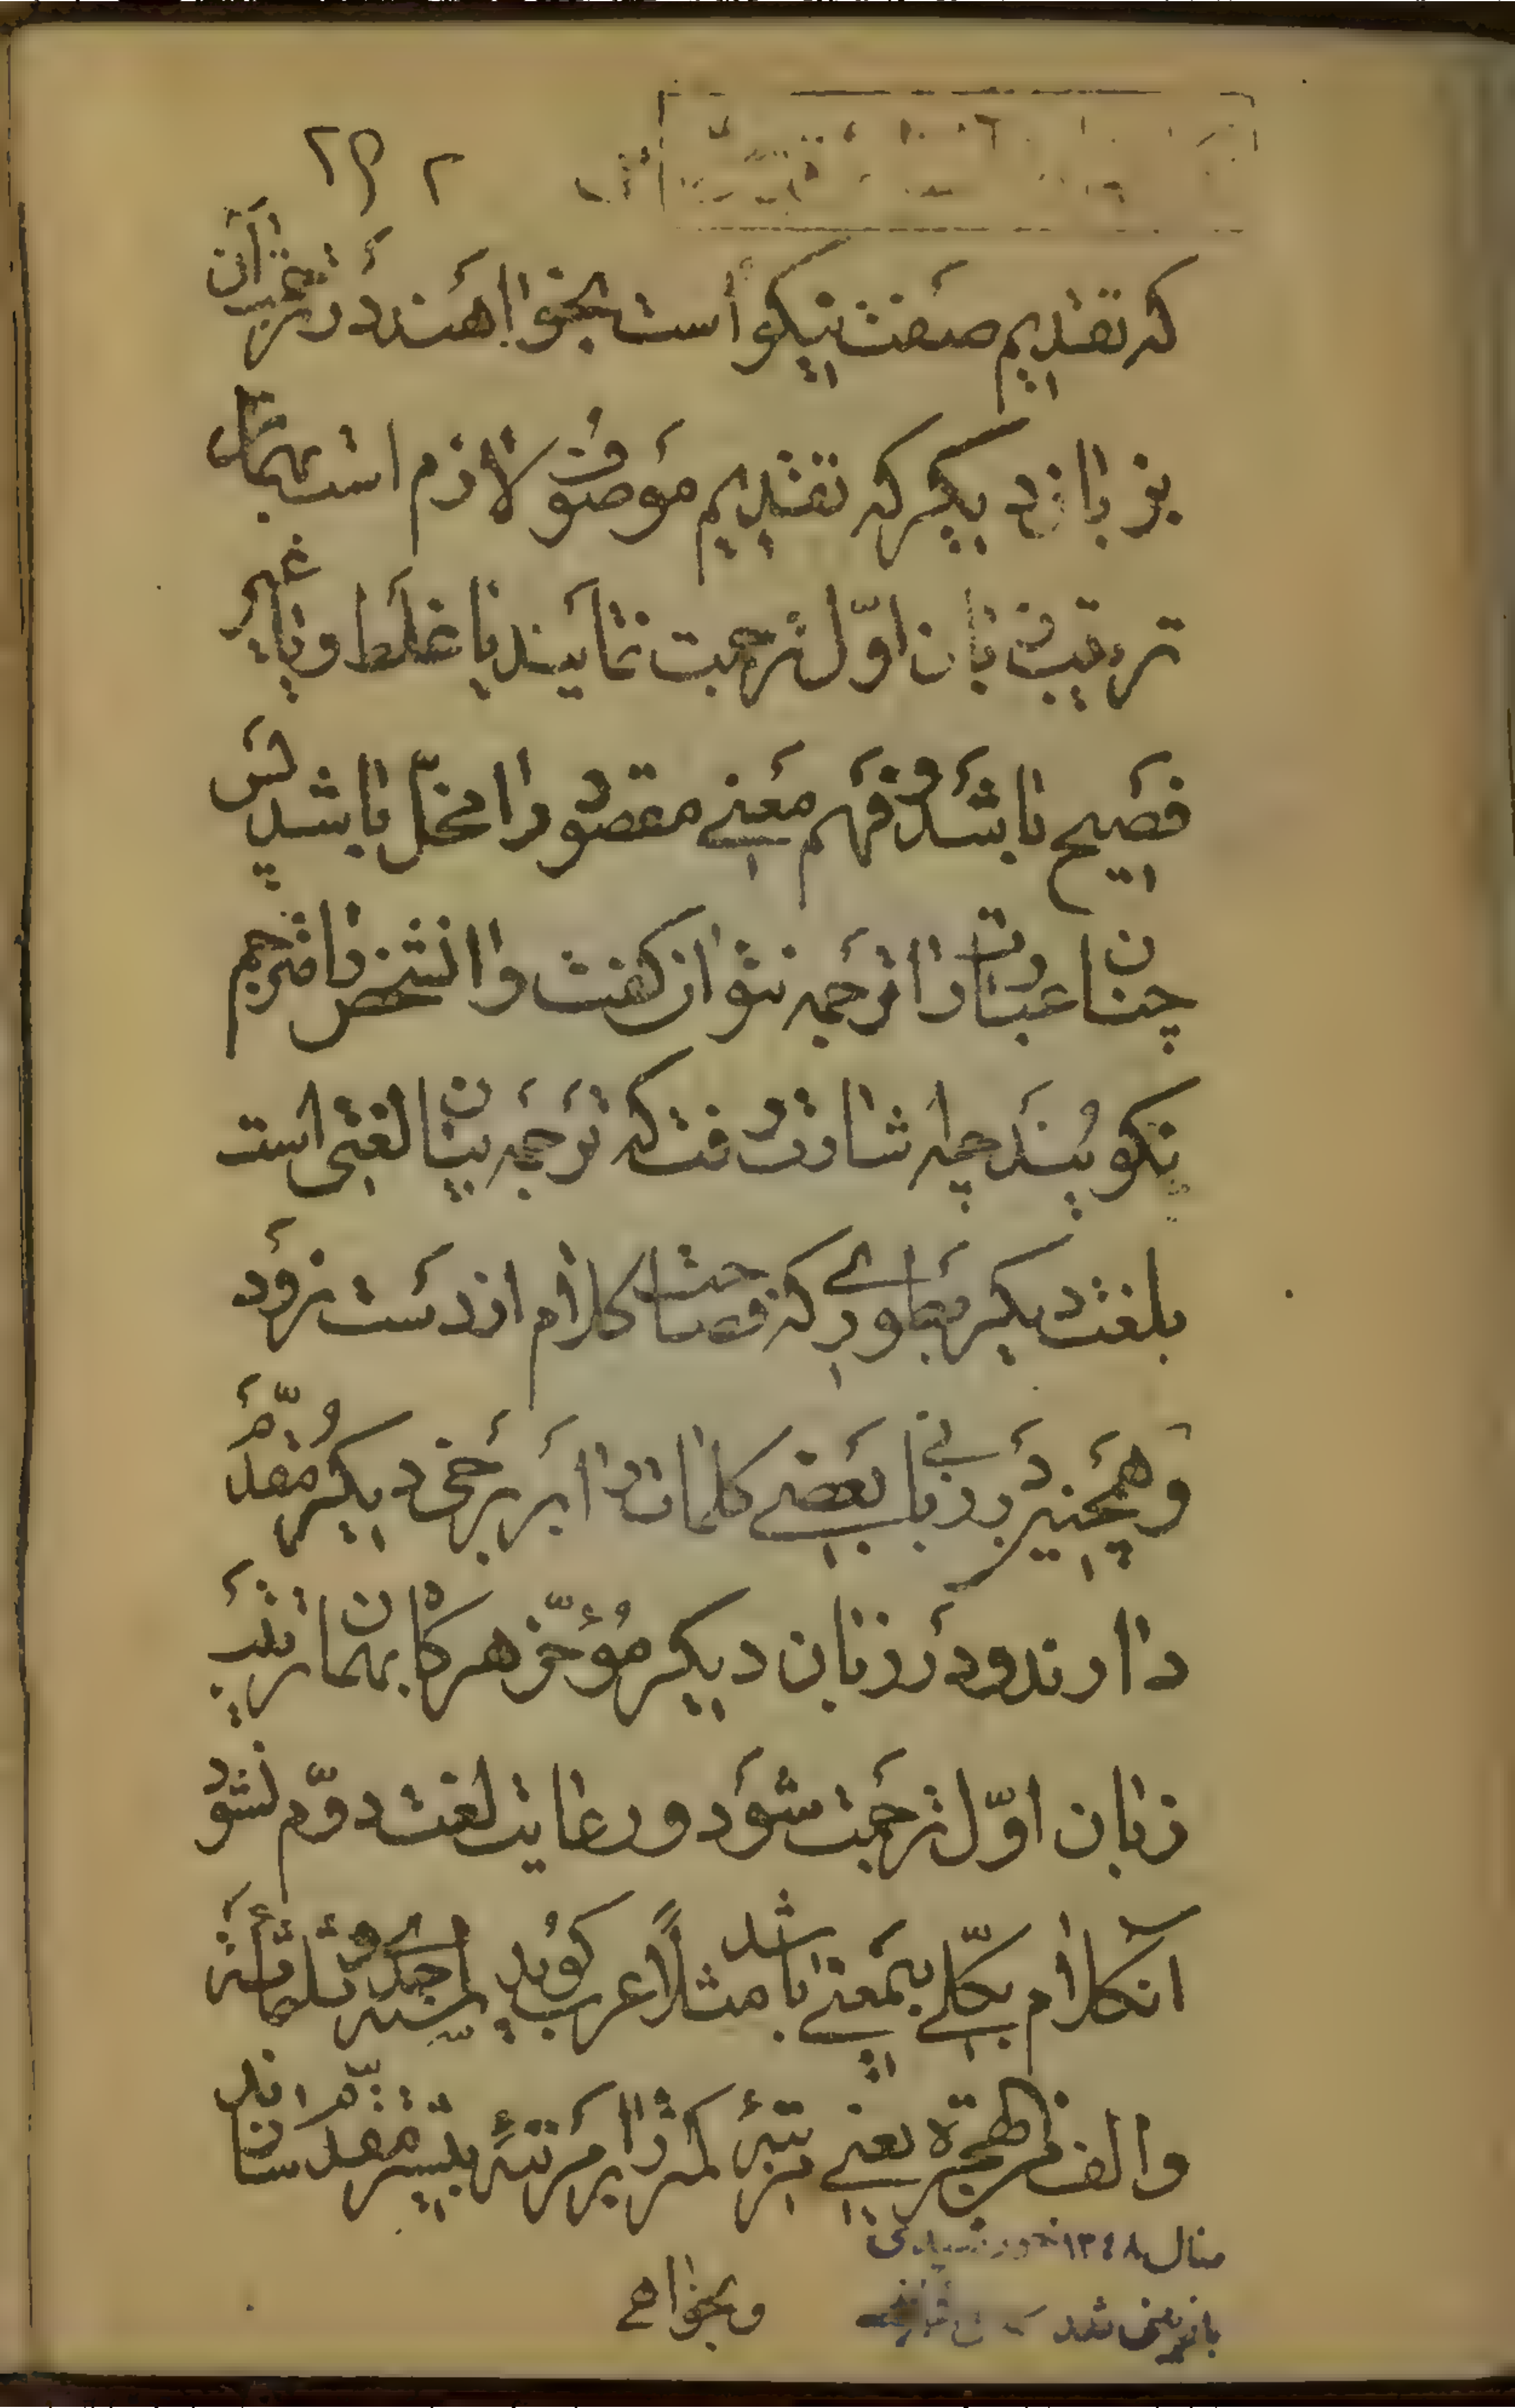 ۲۵۲
که تقدیم صفت نیکو است بخواهند در ترجمه آن
بزبان دیگر که تقدیم موصوف لازم است بهمان
ترتیب زبان اوّل ترجمت نمایند یا غلط و یا غیر
فصیح باشد و فهم معنی مقصود را مخلّ باشد پس
چنان عبارت را ترجمه نتوان گفت و انشخص را مترجم
نگویند چرا که ترجمه بیان لغتی است
بلغت دیگر بطوری که فصاحت کلام از دست نرود
و همچنین در زبانی بعضی کلمات را بر برخی دیگر مقدّم
دارند و در زبان دیگر مؤخّر هرگاه بهمان ترتیب
زبان اوّل ترجمت شود و رعایت لغت دوّم نشود
آنکلام بکلّی بیمعنی باشد مثلاً عرب گوید لسنه احدی و ثلثمائة
والف من الهجرة یعنی مرتبهٔ کمتر را بر مرتبهٔ بیشتر مقدّم رسانند
و بخواهی
سال ۱۳۴۸ خورشیدی
بازبینی شد